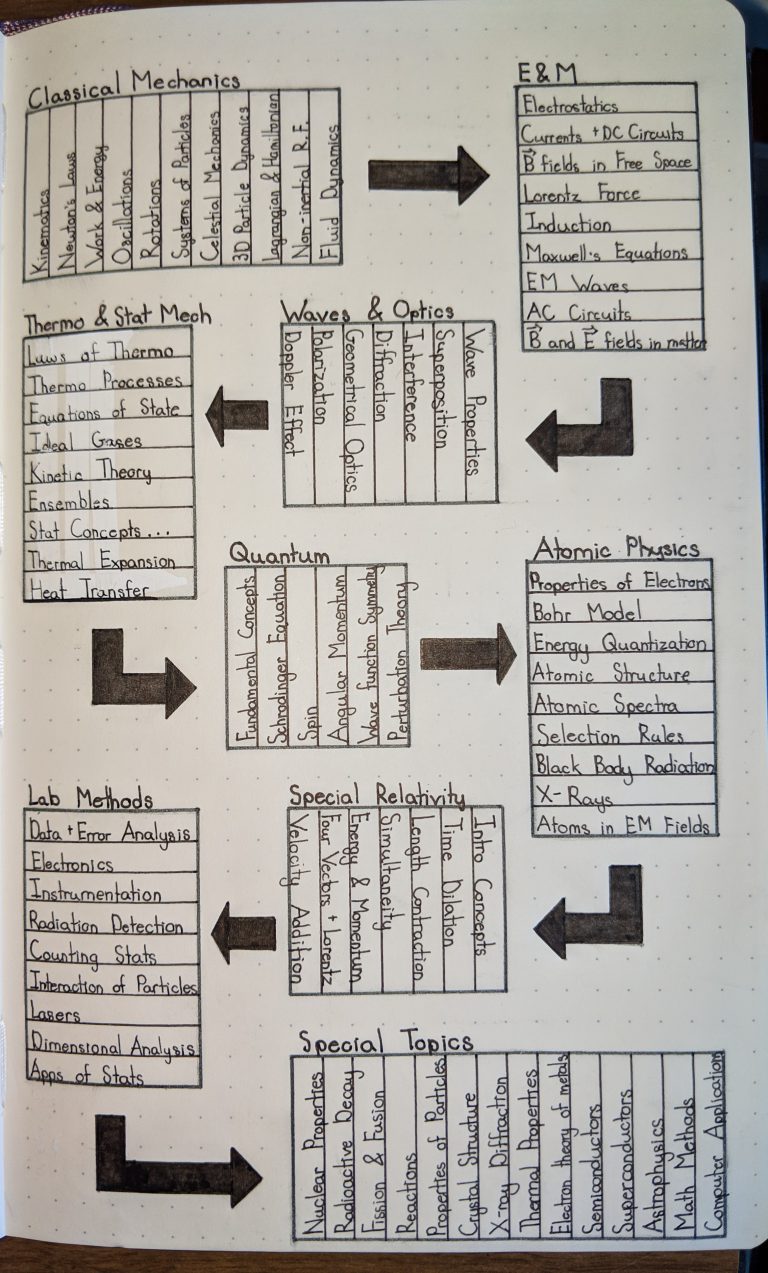 Classical Mechanics
Kinematics
Newton's Laws
Work & Energy
Oscillations
Rotations
Systems of Particles
Celestial Mechanics
3D Particle Dynamics
Lagrangian & Hamiltonian
Non-inertial R.F.
Fluid Dynamics
E & M
Electrostatics
Currents + DC Circuits
B⃗ fields in Free Space
Lorentz Force
Induction
Maxwell's Equations
EM Waves
AC Circuits
B⃗ and E⃗ fields in matter
Waves & Optics
Wave Properties
Superposition
Interference
Diffraction
Geometrical Optics
Polarization
Doppler Effect
Thermo & Stat Mech
Laws of Thermo
Thermo Processes
Equations of State
Ideal Gases
Kinetic Theory
Ensembles
Stat Concepts...
Thermal Expansion
Heat Transfer
Quantum
Fundamental Concepts
Schrodinger Equation
Spin
Angular Momentum
Wave function Symmetry
Perturbation Theory
Atomic Physics
Properties of Electrons
Bohr Model
Energy Quantization
Atomic Structure
Atomic Spectra
Selection Rules
Black Body Radiation
X-Rays
Atoms in EM Fields
Special Relativity
Intro Concepts
Time Dilation
Length Contraction
Simultaneity
Energy & Momentum
Four Vectors + Lorentz
Velocity Addition
Lab Methods
Data + Error Analysis
Electronics
Instrumentation
Radiation Detection
Counting Stats
Interaction of Particles
Lasers
Dimensional Analysis
Apps of Stats
Special Topics
Nuclear Properties
Radioactive Decay
Fission & Fusion
Reactions
Properties of Particles
Crystal Structure
X-ray Diffraction
Thermal Properties
Electron theory of metals
Semiconductors
Superconductors
Astrophysics
Math Methods
Computer Application